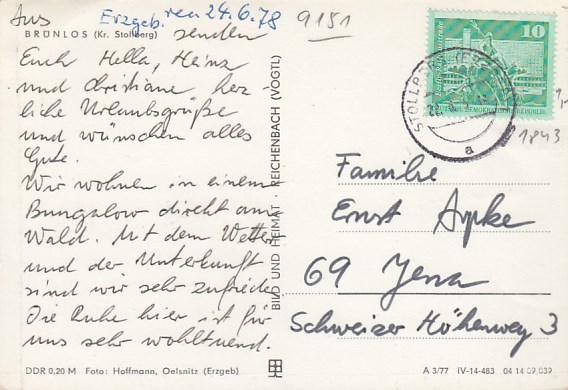 Aus
Erzgeb. den 24.6.78
9151
BRÜNLOS (Kr. Stollberg) senden
Euch Hella, Heinz
und Christiane herz-
liche Urlaubsgrüße
und wünschen alles
Gute.
Wir wohnen in einem
Bungalow direkt am
Wald. Mit dem Wetter
und der Unterkunft
sind wir sehr zufrieden
Die Ruhe hier ist für
uns sehr wohltuend.
DDR 0,20 M Foto: Hoffmann, Oelsnitz (Erzgeb)
BILD UND HEIMAT · REICHENBACH (VOGTL)
10
DEUTSCHE DEMOKRATISCHE REPUBLIK
STOLLBERG (ERZGEB)
a
1843
Familie
Ernst Apke
69 Jena
Schweizer Höhenweg 3
A 3/77 IV-14-483 04 14 09 039